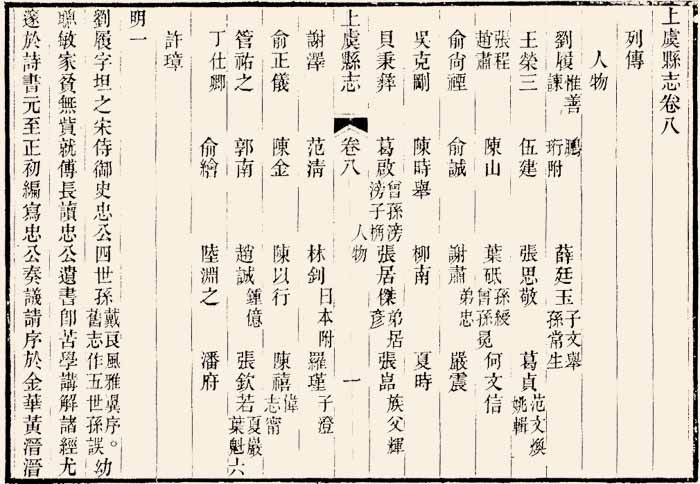 上虞縣志卷八
列傳
人物
劉履 惟善 諫 鵬 珩附 薛廷玉 子文舉 孫常生
王榮三 伍建 張思敬 葛貞 范文煥 姚輯
張程 趙肅 陳山 葉砥 孫綬 曾孫冕 何文信
俞尚禋 俞誠 謝肅 弟忠 嚴震
吳克剛 陳時舉 柳南 夏時
貝秉彝 葛啟 曾孫滂 滂子㭎 張居傑 弟居彥 張嵓 族父輝
上虞縣志 卷八 人物 一
謝澤 范淸 林釗 日本附 羅瑾 子澄
俞正儀 陳金 陳以行 陳禧 偉 志甯
管祐之 郭南 趙誠 鍾億 張欽若 夏巖 葉魁六
丁仕卿 俞繪 陸淵之 潘府
許璋
明一
劉履字坦之宋侍御史忠公四世孫 戴良風雅翼序。舊志作五世孫誤 幼
聰敏家貧無貲就傅長讀忠公遺書卽苦學講解諸經尤
邃於詩書元至正初編寫忠公奏議請序於金華黃溍溍